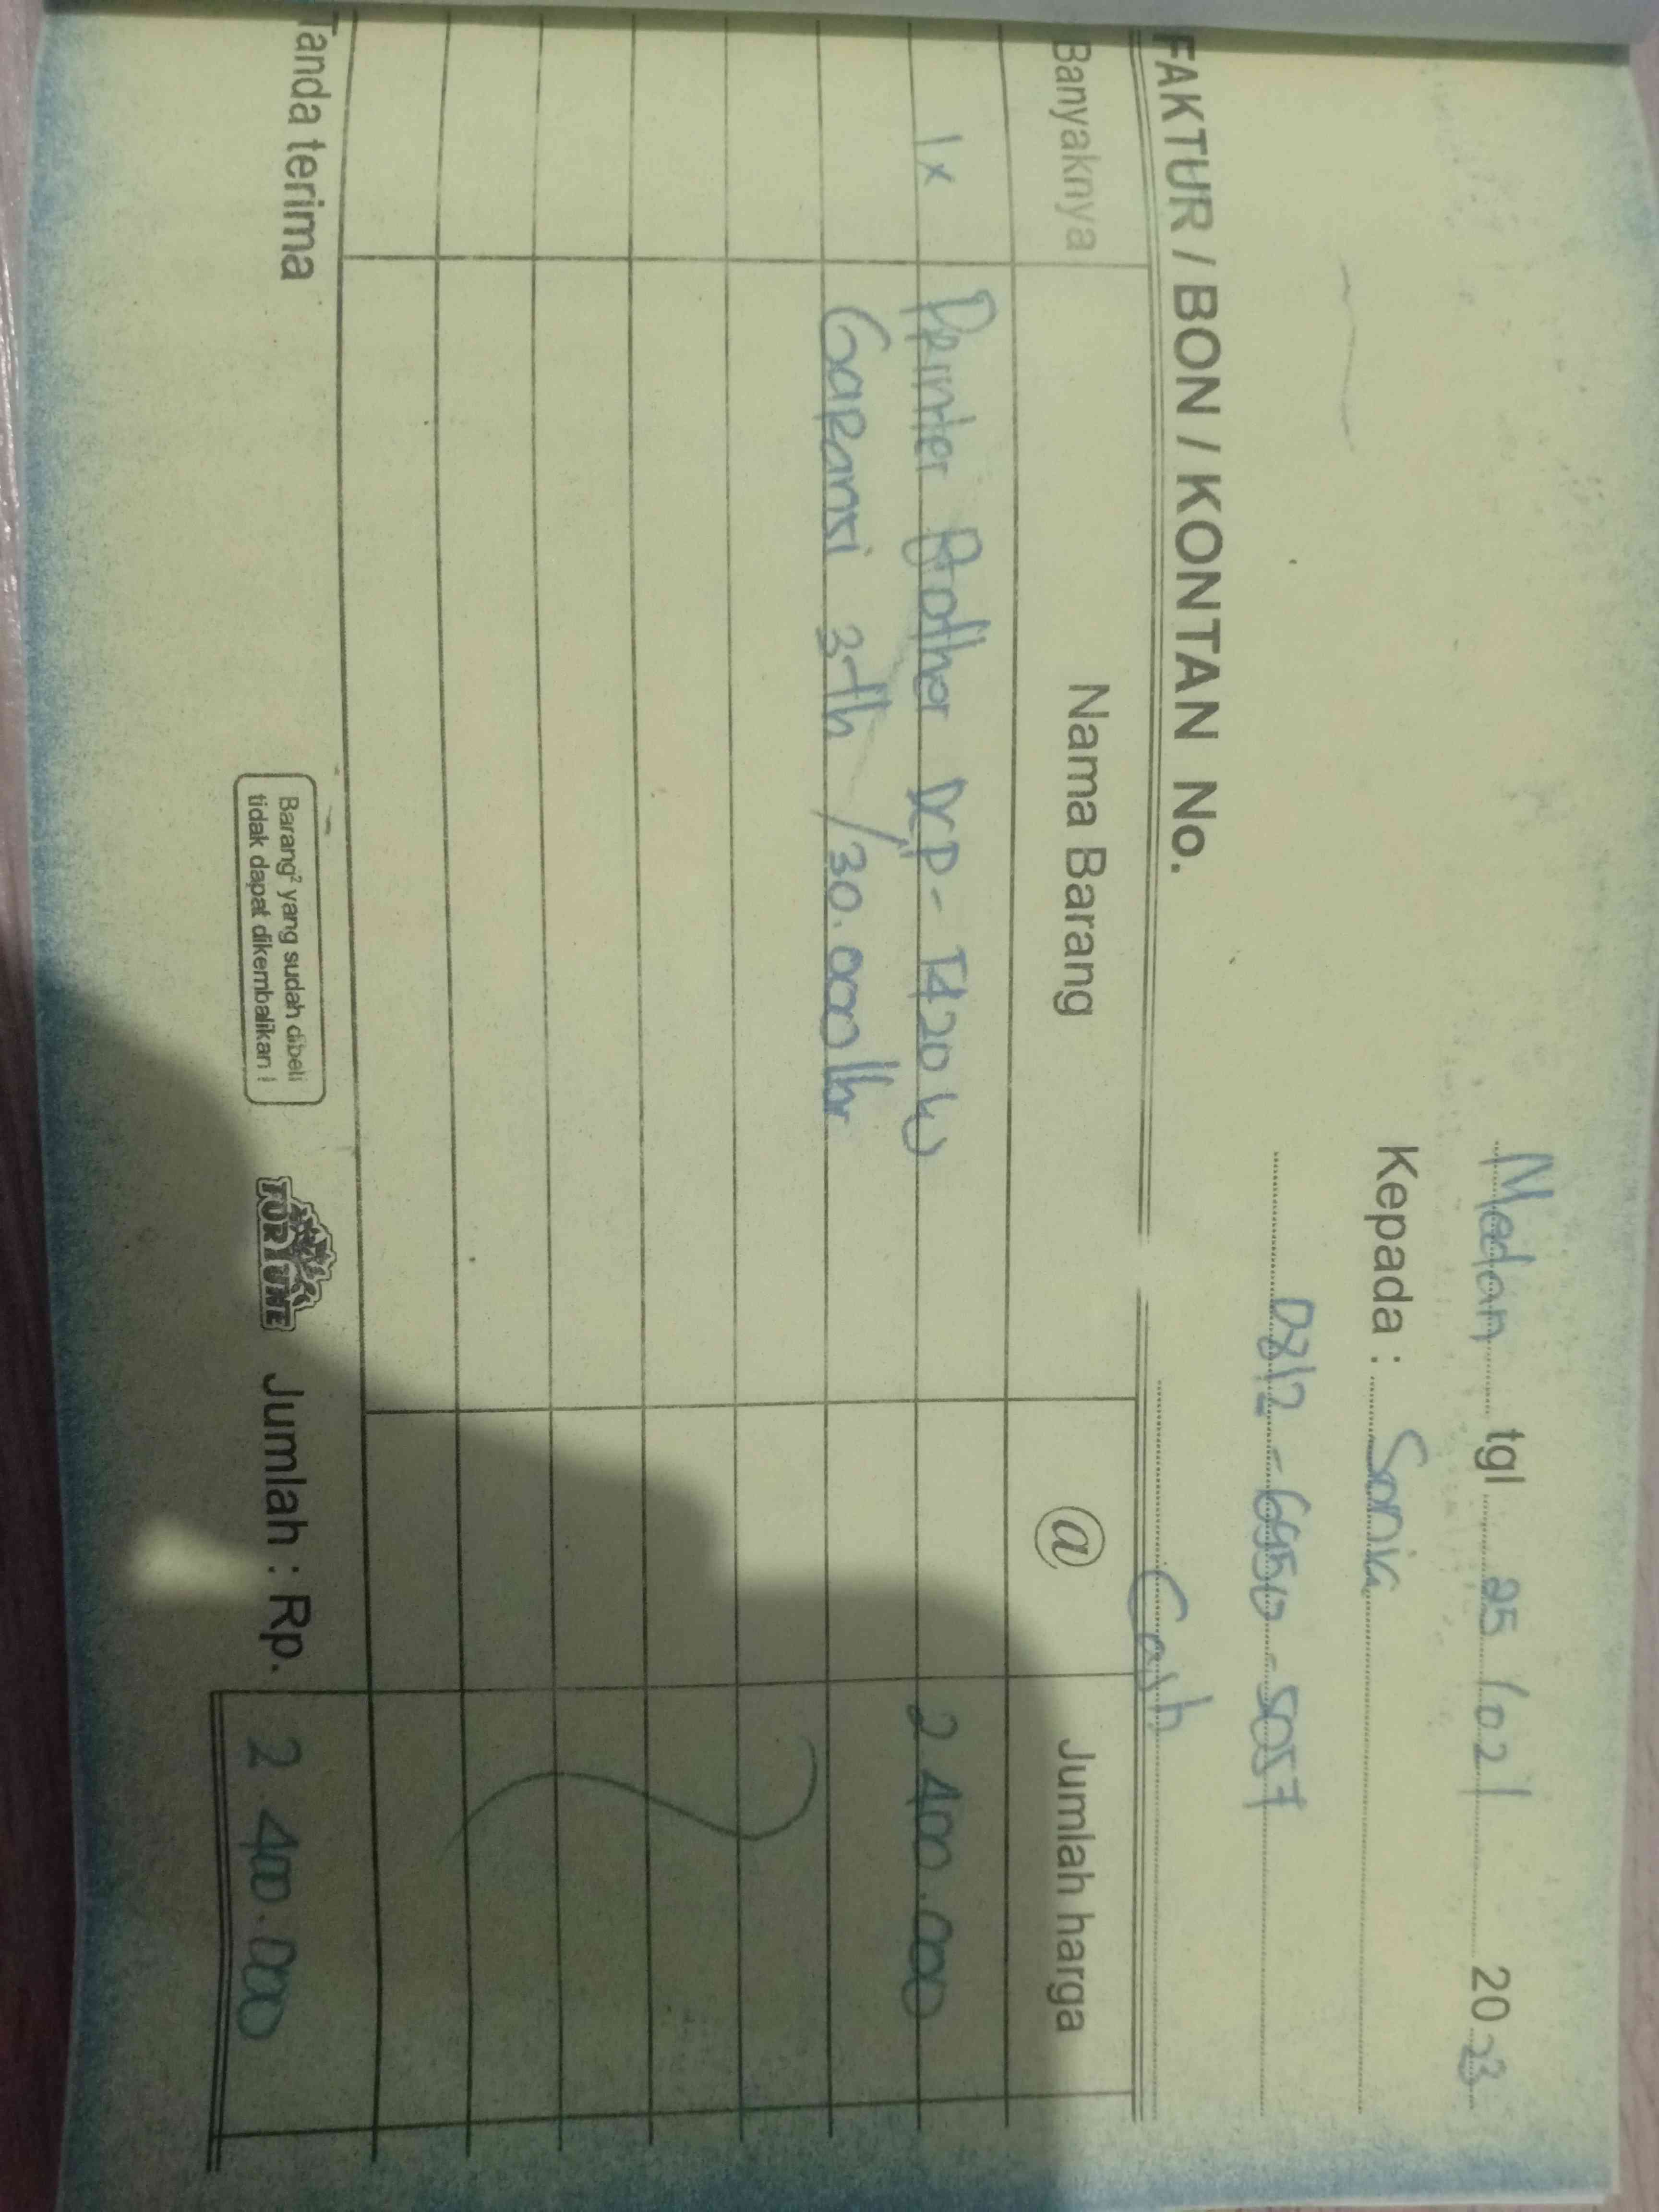 Medan tgl 25/02/ 2023
Kepada : Sonia
0812-6950-5057
FAKTUR / BON / KONTAN No. Cash
Banyaknya Nama Barang @ Jumlah harga
1x Printer Brother DCP-T420W 2.400.000
Garansi 3th /30.000lbr
Tanda terima
Barang² yang sudah dibeli
tidak dapat dikembalikan !
FORTUNE
Jumlah : Rp. 2.400.000